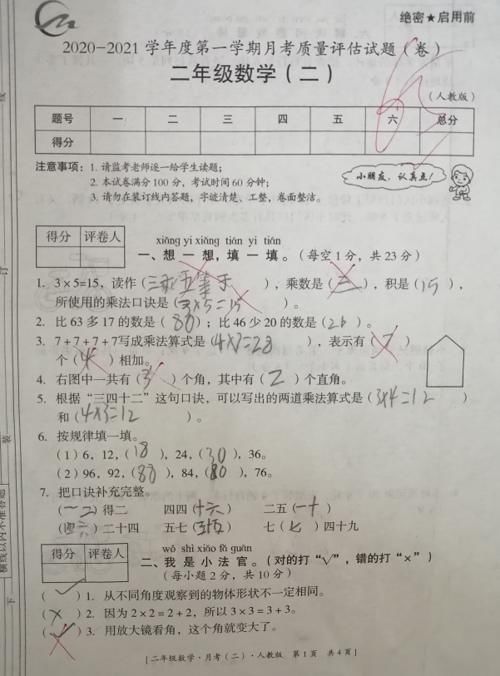 绝密★启用前
2020-2021学年度第一学期月考质量评估试题(卷)
二年级数学(二)
(人教版)
题号 一 二 三 四 五 六 总分
得分
注意事项:1. 请监考老师逐一给学生读题;
2. 本试卷满分100分,考试时间60分钟;
3. 请勿在装订线内答题,字迹清楚、工整,卷面整洁。
小朋友,认真点!
得分 评卷人
xiǎng yi xiǎng tián yi tián
一、想一想,填一填。(每空1分,共23分)
1. 3×5=15,读作(三乘五等于),乘数是(三),积是(15),
所使用的乘法口诀是(3×5=15)。
2. 比63多17的数是(80);比46少20的数是(26)。
3. 7+7+7+7写成乘法算式是(4×7=28),表示有(7)
个(4)相加。
4. 右图中一共有(3)个角,其中有(2)个直角。
5. 根据“三四十二”这句口诀,可以写出的两道乘法算式是(3×4=12)
和(4×3=12)。
6. 按规律填一填。
(1)6,12,(18),24,(30),36。
(2)96,92,(88),84,(80),76。
7. 把口诀补充完整。
(一二)得二 四四(十六) 二五(一十)
(四六)二十四 五七(三十五) 七(七)四十九
得分 评卷人
wǒ shì xiǎo fǎ guān
二、我是小法官。(对的打“√”,错的打“×”)
(每小题2分,共10分)
(✓)1. 从不同角度观察到的物体形状不一定相同。
(×)2. 因为2×2=2+2,所以3×3=3+3。
(✓)3. 用放大镜看角,这个角就变大了。
【二年级数学·月考(二)·人教版 第1页 共4页】
线
订
装
横线以内不准答题
下